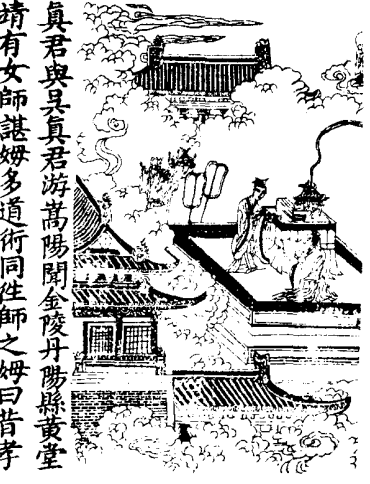 真君與吴真君游嵩陽聞金陵丹陽縣黄堂
靖有女師諶姆多道術同往師之姆曰昔孝